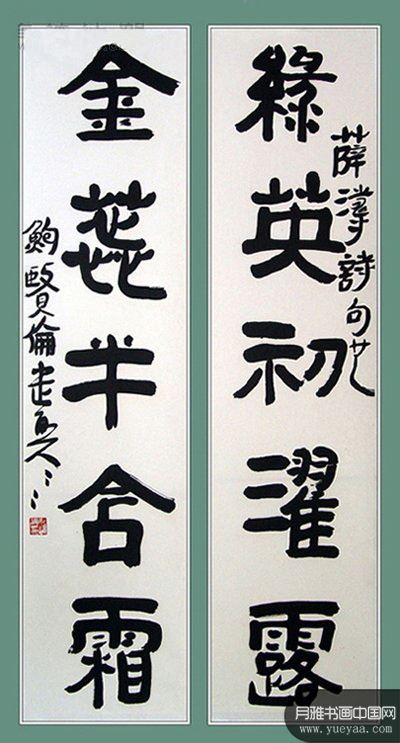 綠英初濯露
詩句
金蕊半含霜
鮑賢倫
月雅书画中国网
www.yueyaa.com